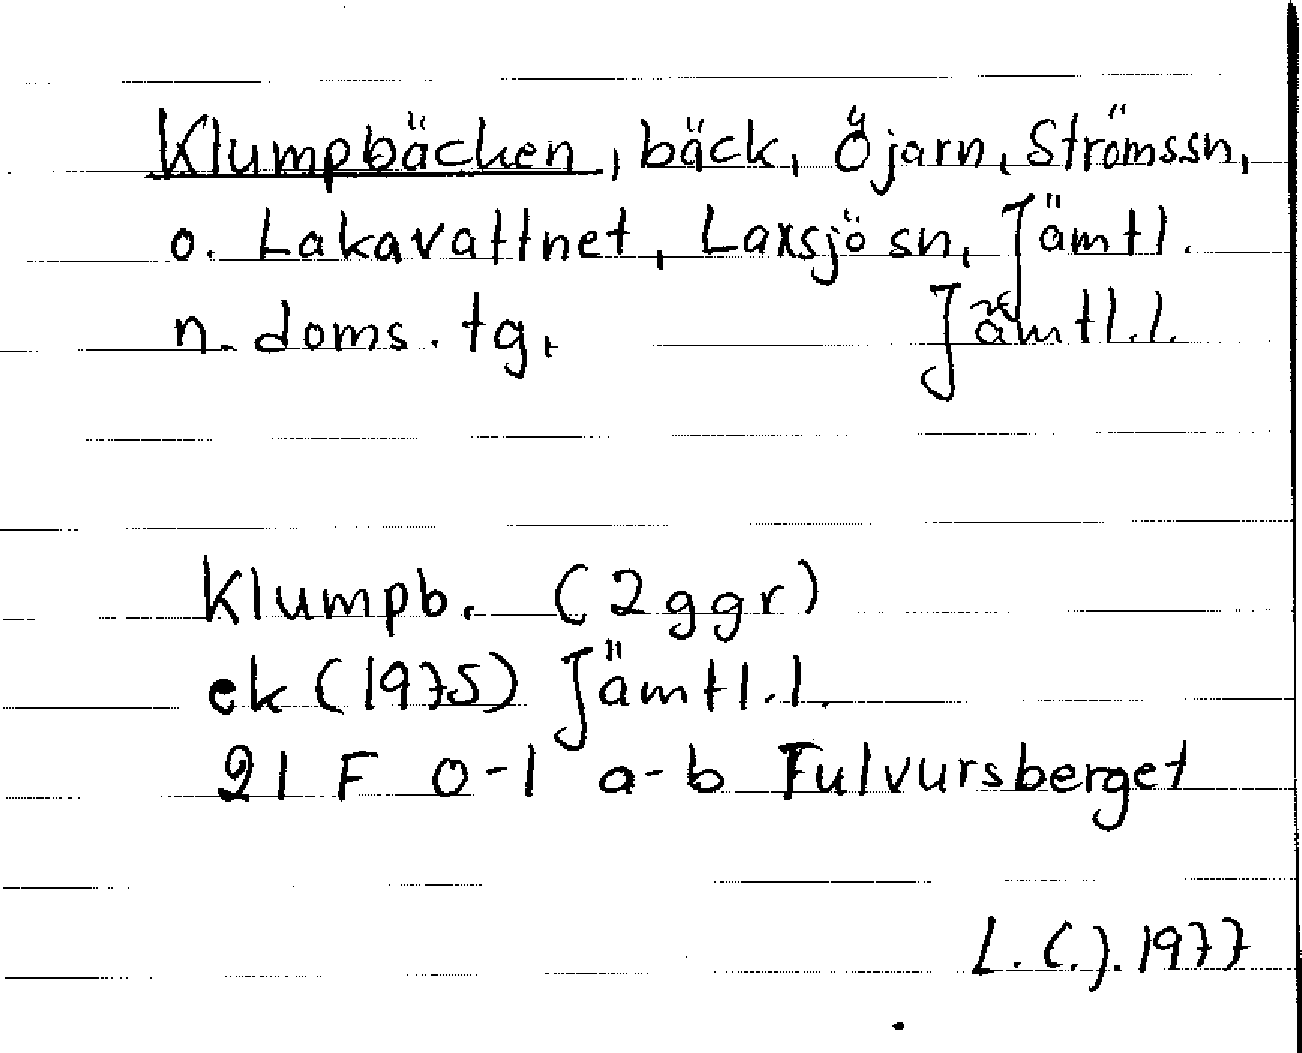 Klumpbäcken, bäck, Öjarn, Ströms sn,
o. Lakavattnet, Laxsjö sn, Jämtl.
n. doms. tg. Jämtl.l.
Klumpb. (2ggr)
ek (1975) Jämtl.l.
21 F 0-1 a-b Fulvursberget
L.C.J. 1977